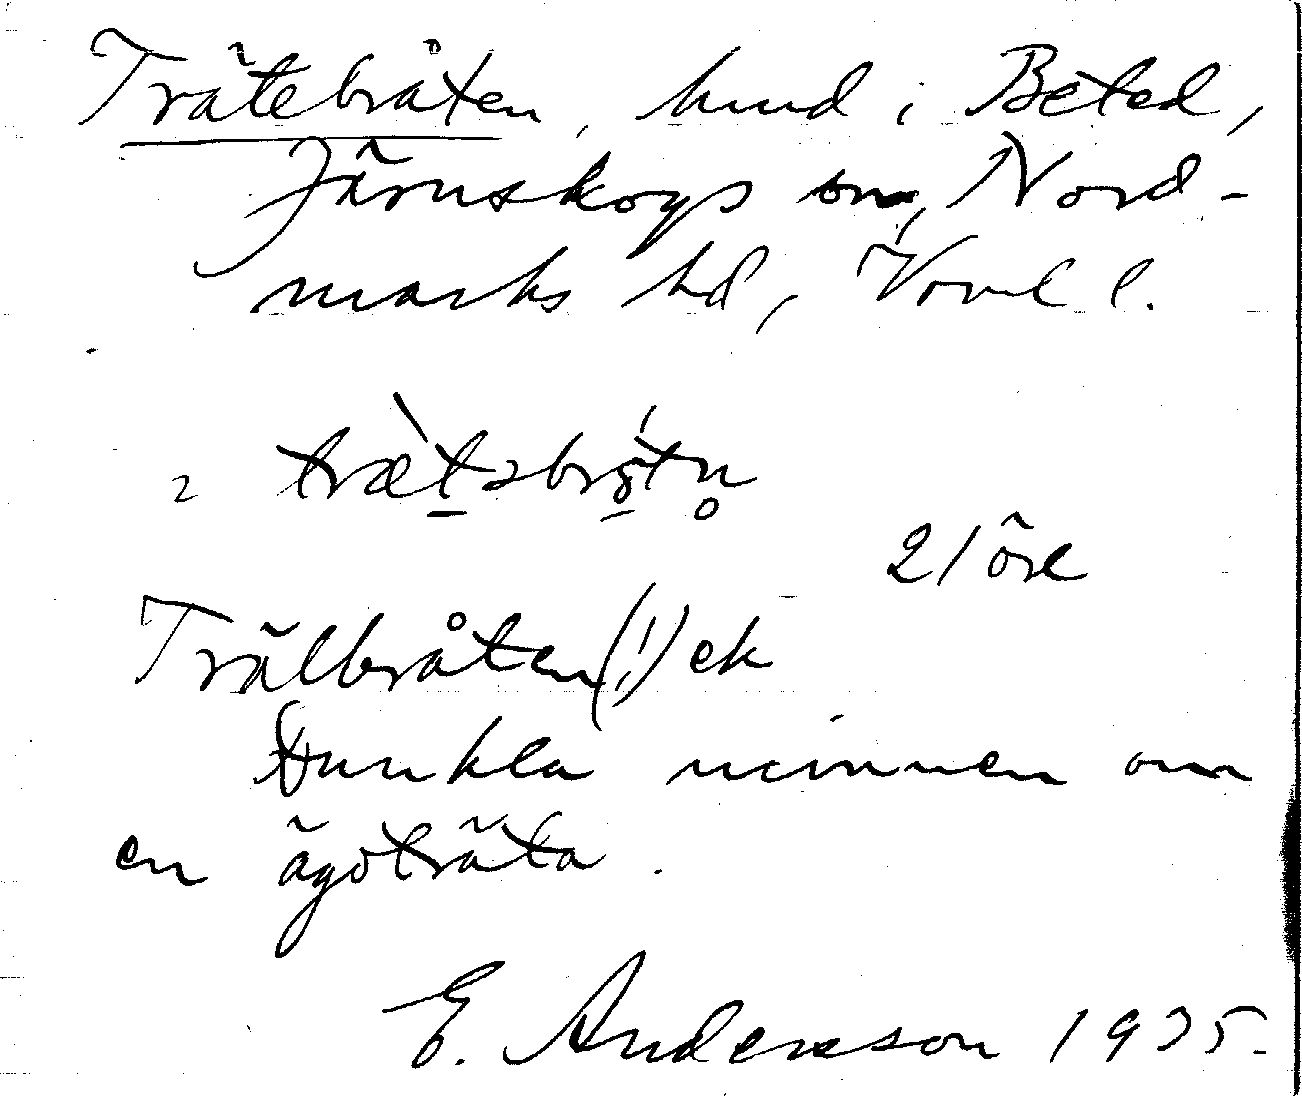 Trätebråten, hmd i Beted,
Järnskogs sn, Nord-
marks hd, Vrml l.
2 træ̀təbrɷ́tn̥
21 öre
Trälbråten(!) ek
Dunkla minnen om
en ägoträta.
E. Andersson 1935